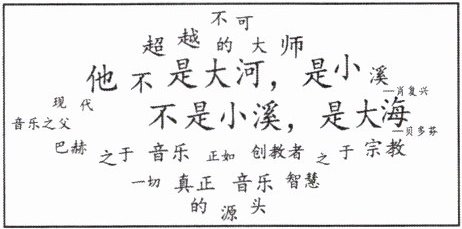 不可
超越的大师
他不是大河，是小溪
——肖复兴
现代
不是小溪，是大海
音乐之父
——贝多芬
巴赫之于音乐正如创教者之于宗教
一切真正音乐智慧
的源头